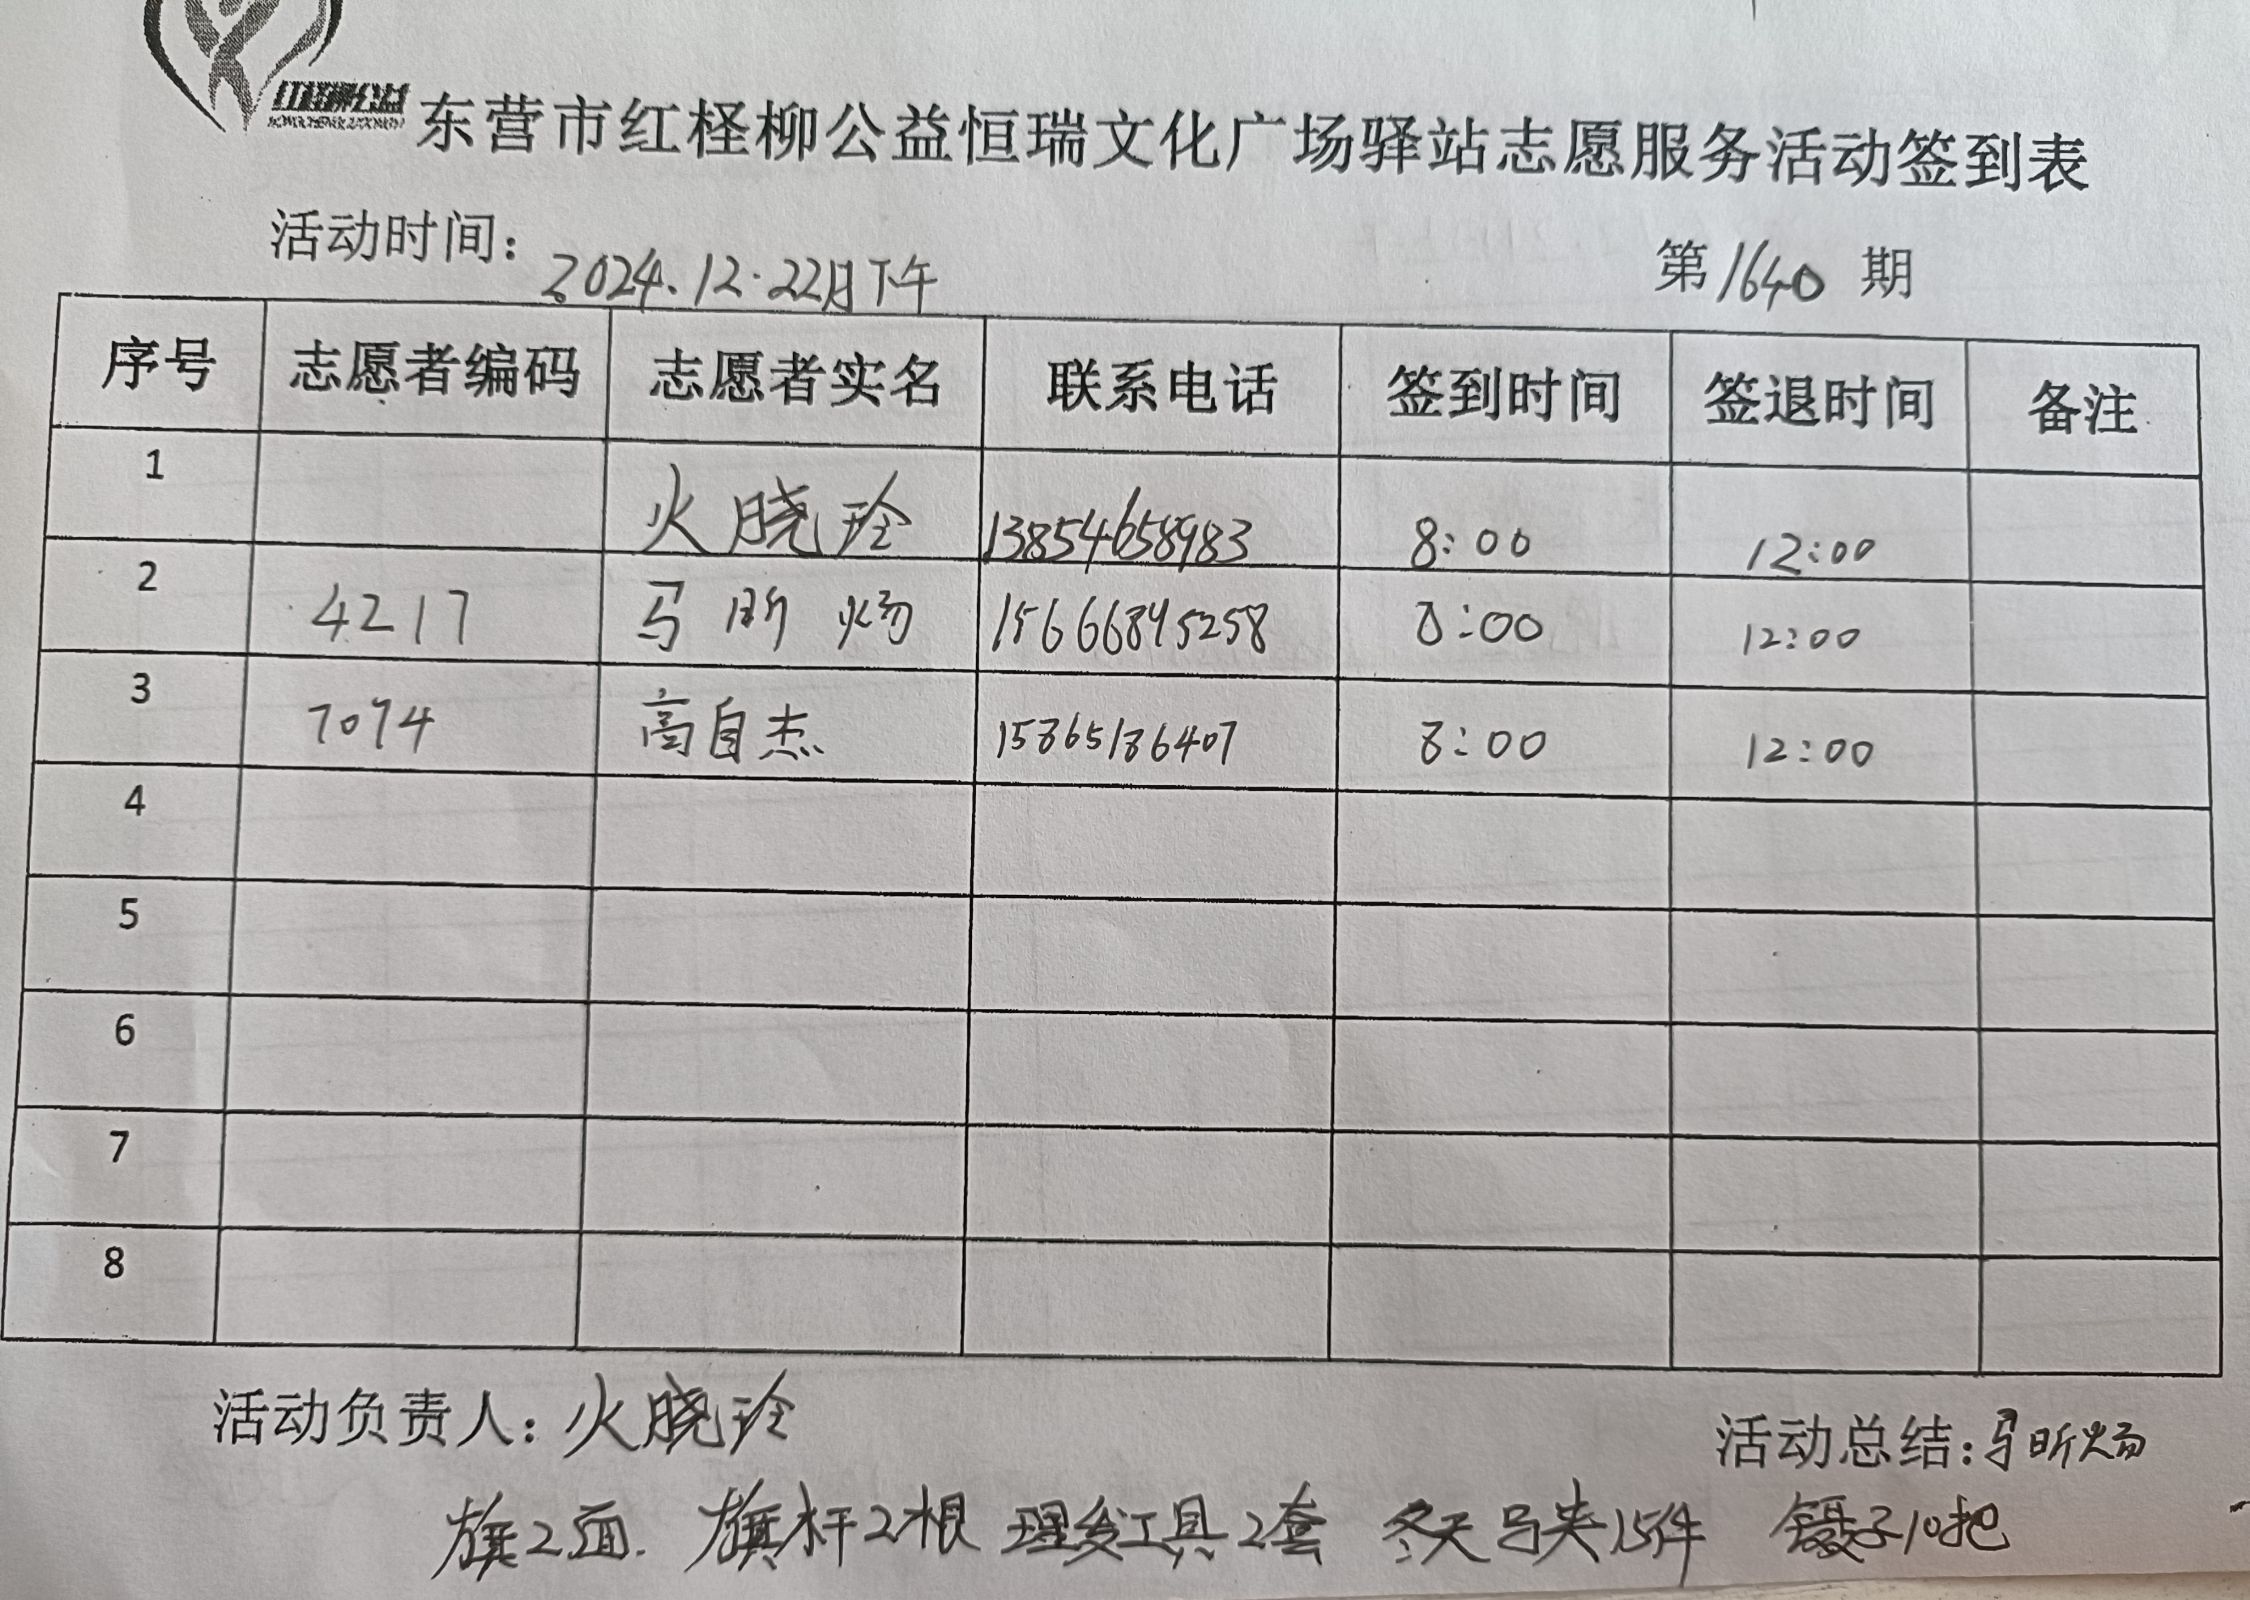 红柽柳公益
东营市红柽柳公益恒瑞文化广场驿站志愿服务活动签到表
活动时间：2024.12.22日下午 第1640期
序号 志愿者编码 志愿者实名 联系电话 签到时间 签退时间 备注
1 火晓玲 13854658983 8:00 12:00
2 4217 马昕炀 15666845258 8:00 12:00
3 7074 高自杰 15865186407 8:00 12:00
4
5
6
7
8
活动负责人：火晓玲 活动总结：马昕炀
旗2面. 旗杆2根 理发工具2套 冬天马夹15件 镊子10把